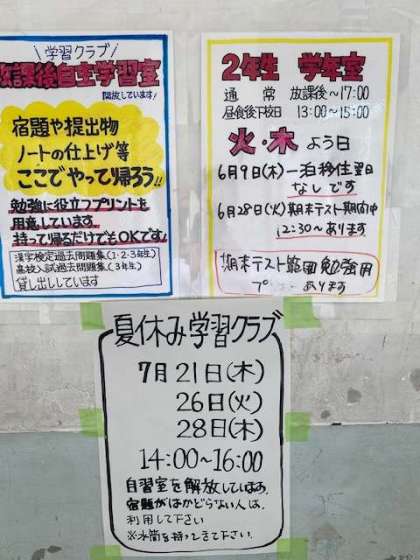 学習クラブ
放課後自主学習室
開放しています
宿題や提出物
ノートの仕上げ等
ここでやって帰ろう!!
勉強に役立つプリントを
用意しています。
持って帰るだけでもOKです
漢字検定過去問題集(1・2・3年生)
高校入試過去問題集(3年生)
貸し出ししています
2年生 学年室
通常 放課後~17:00
昼食後下校日 13:00~15:00
火・木よう日
6月9日(木)一泊移住翌日
なしです
6月28日(火)期末テスト期間中
12:30~あります
期末テスト範囲勉強用
あります
夏休み学習クラブ
7月21日(木)
26日(火)
28日(木)
14:00~16:00
自習室を解放しています。
宿題がはかどらない人は、
利用して下さい
※水筒を持ってきて下さい。